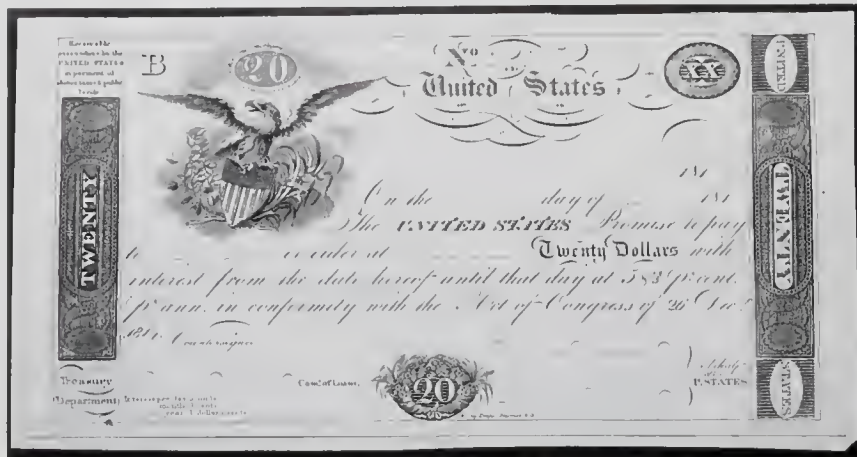 Receivable
every where by the
UNITED STATES
in payment of
duties taxes & public
lands
B
20
No
United States
XX
UNITED
TWENTY
TWENTY
181
On the day of 181
The UNITED STATES Promise to pay
to or order at Twenty Dollars with
interest from the date hereof until that day at 5 pr cent.
pr ann. in conformity with the Act of Congress of 26 Decr
1814
Countersigned
Treasury
Department
Interest per day
month
year 1 dollar cents
Comr of Loans.
20
U. STATES
STATES